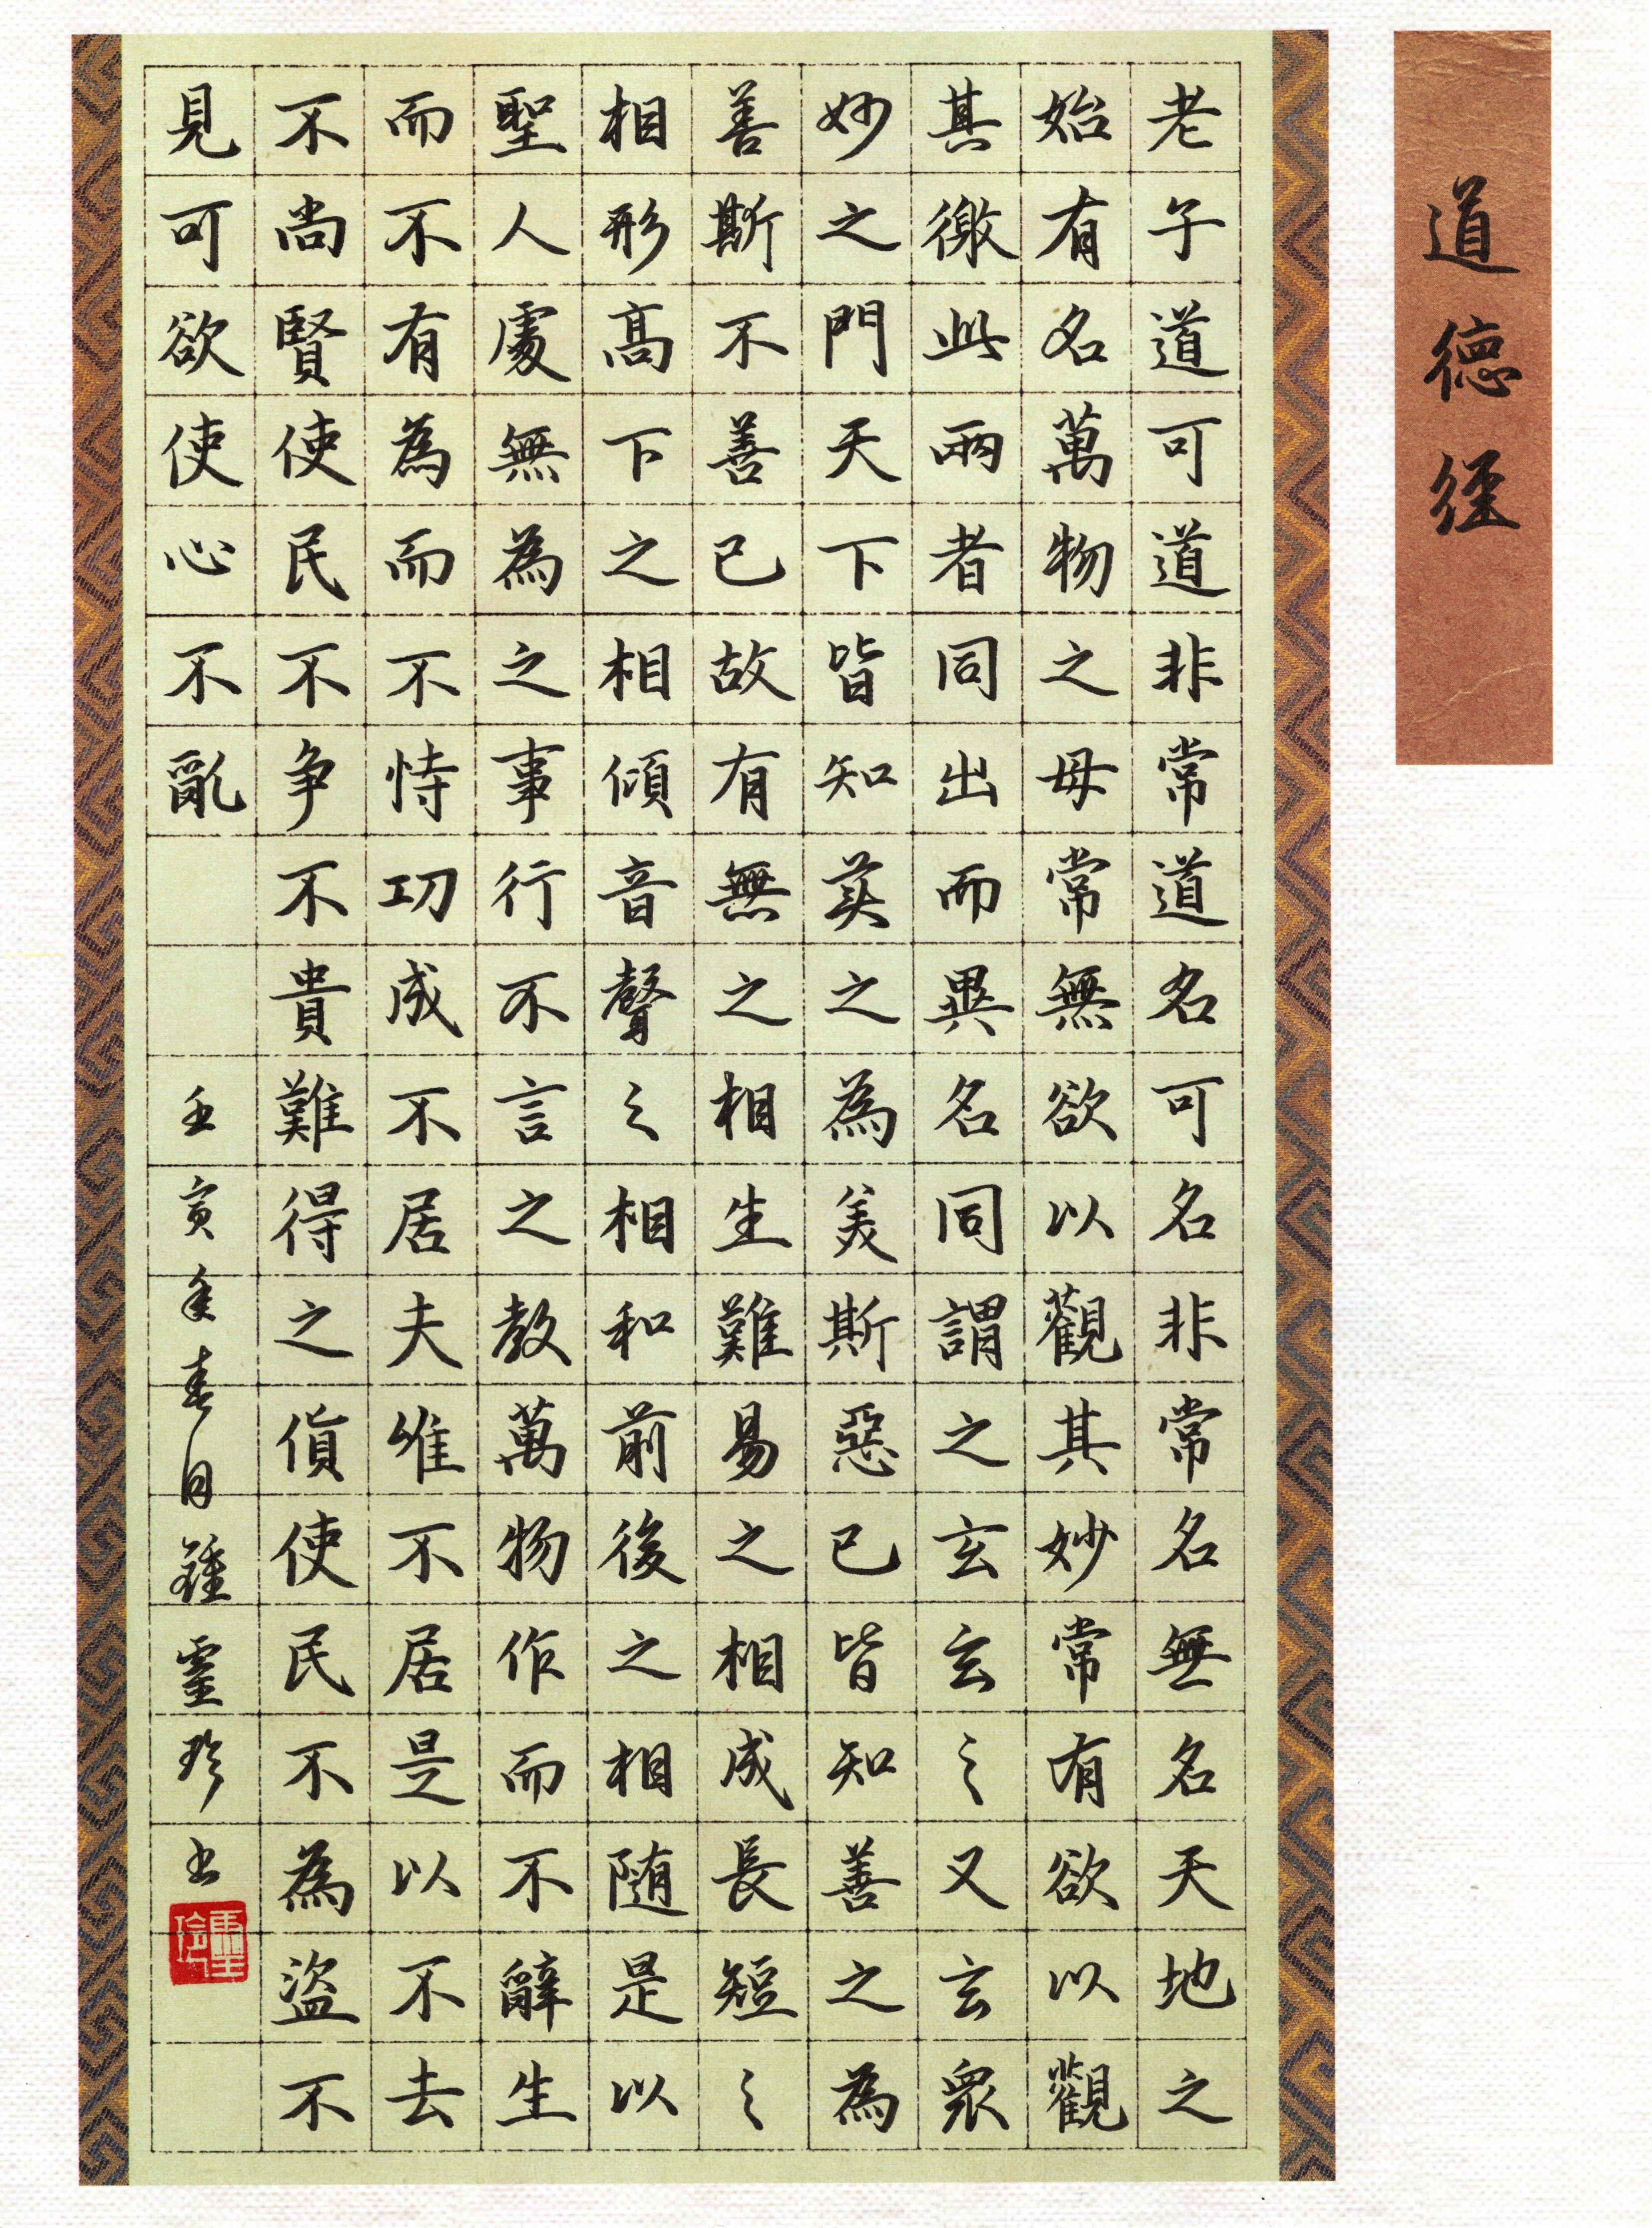 道德經
老子道可道非常道名可名非常名無名天地之
始有名萬物之母常無欲以觀其妙常有欲以觀
其徼此兩者同出而異名同謂之玄玄之又玄衆
妙之門天下皆知美之為美斯惡已皆知善之為
善斯不善已故有無之相生難易之相成長短之
相形高下之相傾音聲之相和前後之相随是以
聖人處無為之事行不言之教萬物作而不辭生
而不有為而不恃功成不居夫唯不居是以不去
不尚賢使民不争不貴難得之貨使民不為盜不
見可欲使心不亂
壬寅年春月鍾靈珍书